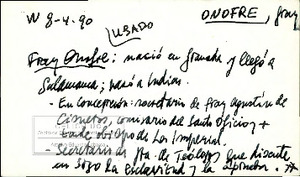 W 8-4-90
USADO
ONOFRE, fray
Fray Onofre; nació en Granada y llegó a
Salamanca; pasó a Indias.
- En Concepción: secretario de fray Agustín de
Cisneros, comisario del Santo Oficio, y
tarde obispo de La Imperial
- Secretario de Jta. de Teólogos que discute
en 1570 la esclavitud y la